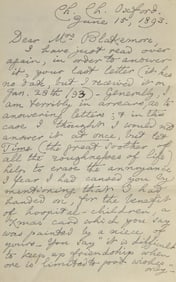 Ch. Ch. Oxford.
June 15, 1893.
Dear Mrs. Blakemore,
I have just read over
again, in order to answer
it, your last letter (it has
no date, but I received it on
Jan. 28th /93). Generally, I
am terribly in arrears, as to
answering letters: & in this
case I thought I would not
answer it at once, but let
Time (the great soother of
all the roughnesses of life)
help to erase the annoyance
I fear I had caused you by
mentioning that I had
handed on, for the benefit
of hospital-children, the
Xmas card which you say
was painted by a niece of
yours. You say "it is difficult
to keep up friendship when
one is limited to post
may-